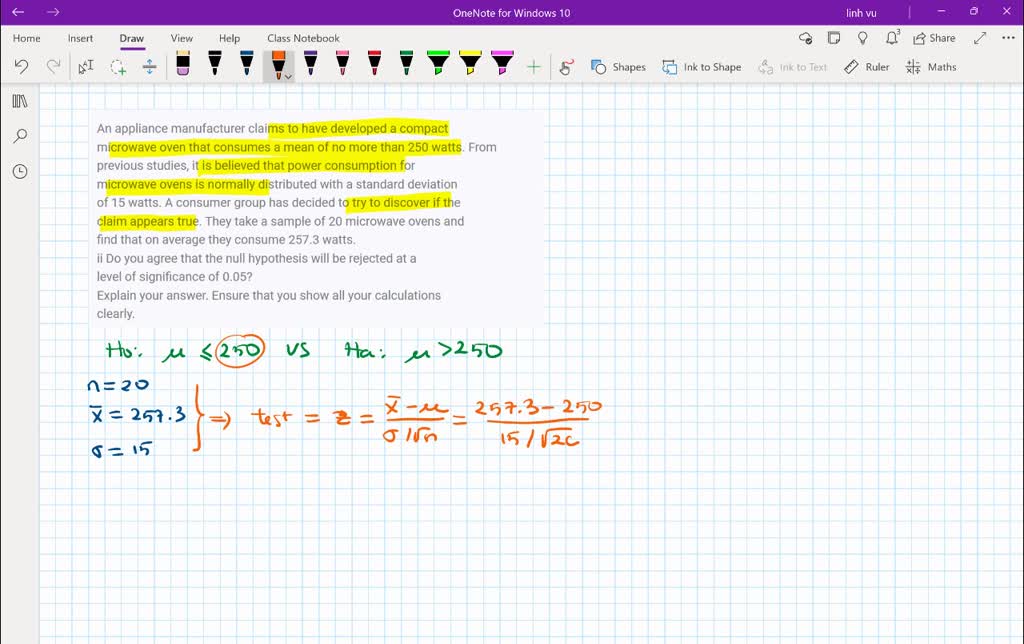 OneNote for Windows 10
linh vu
Home Insert Draw View Help Class Notebook
3
Share
Shapes Ink to Shape Ink to Text Ruler Maths
An appliance manufacturer claims to have developed a compact
microwave oven that consumes a mean of no more than 250 watts. From
previous studies, it is believed that power consumption for
microwave ovens is normally distributed with a standard deviation
of 15 watts. A consumer group has decided to try to discover if the
claim appears true. They take a sample of 20 microwave ovens and
find that on average they consume 257.3 watts.
ii Do you agree that the null hypothesis will be rejected at a
level of significance of 0.05?
Explain your answer. Ensure that you show all your calculations
clearly.
Ho: μ ≤ 250 vs Ha: μ > 250
n = 20
x̄ = 257.3
σ = 15
⇒ test = z = x̄ - μ / σ/√n = 257.3 - 250 / 15/√20